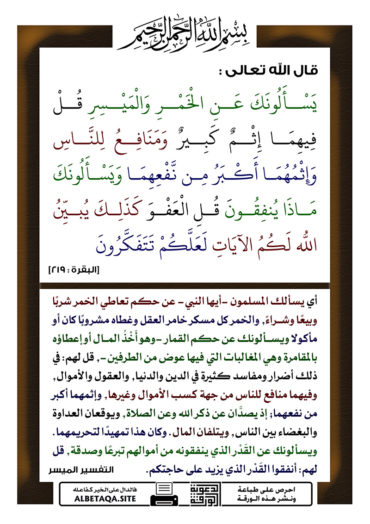 بسم الله الرحمن الرحيم
قال الله تعالى :
يَسْأَلُونَكَ عَنِ الْخَمْرِ وَالْمَيْسِرِ قُلْ
فِيهِمَا إِثْمٌ كَبِيرٌ وَمَنَافِعُ لِلنَّاسِ
وَإِثْمُهُمَا أَكْبَرُ مِن نَّفْعِهِمَا وَيَسْأَلُونَكَ
مَاذَا يُنفِقُونَ قُلِ الْعَفْوَ كَذَلِكَ يُبيِّنُ
اللّهُ لَكُمُ الآيَاتِ لَعَلَّكُمْ تَتَفَكَّرُونَ
[البقرة : ٢١٩]
أي يسألك المسلمون -أيها النبي- عن حكم تعاطي الخمر شربًا
وبيعًا وشراءً, والخمر كل مسكر خامر العقل وغطاه مشروبًا كان أو
مأكولا ويسألونك عن حكم القمار -وهو أَخْذُ المال أو إعطاؤه
بالمقامرة وهي المغالبات التي فيها عوض من الطرفين-, قل لهم: في
ذلك أضرار ومفاسد كثيرة في الدين والدنيا, والعقول والأموال,
وفيهما منافع للناس من جهة كسب الأموال وغيرها, وإثمهما أكبر
من نفعهما; إذ يصدَّان عن ذكر الله وعن الصلاة, ويوقعان العداوة
والبغضاء بين الناس, ويتلفان المال. وكان هذا تمهيدًا لتحريمهما.
ويسألونك عن القَدْر الذي ينفقونه من أموالهم تبرعًا وصدقة, قل
لهم: أنفقوا القَدْر الذي يزيد على حاجتكم. التفسير الميسر
احرص على طباعة
ونشر هذه الورقة
فالدال على الخير كفاعله
ALBETAQA.SITE